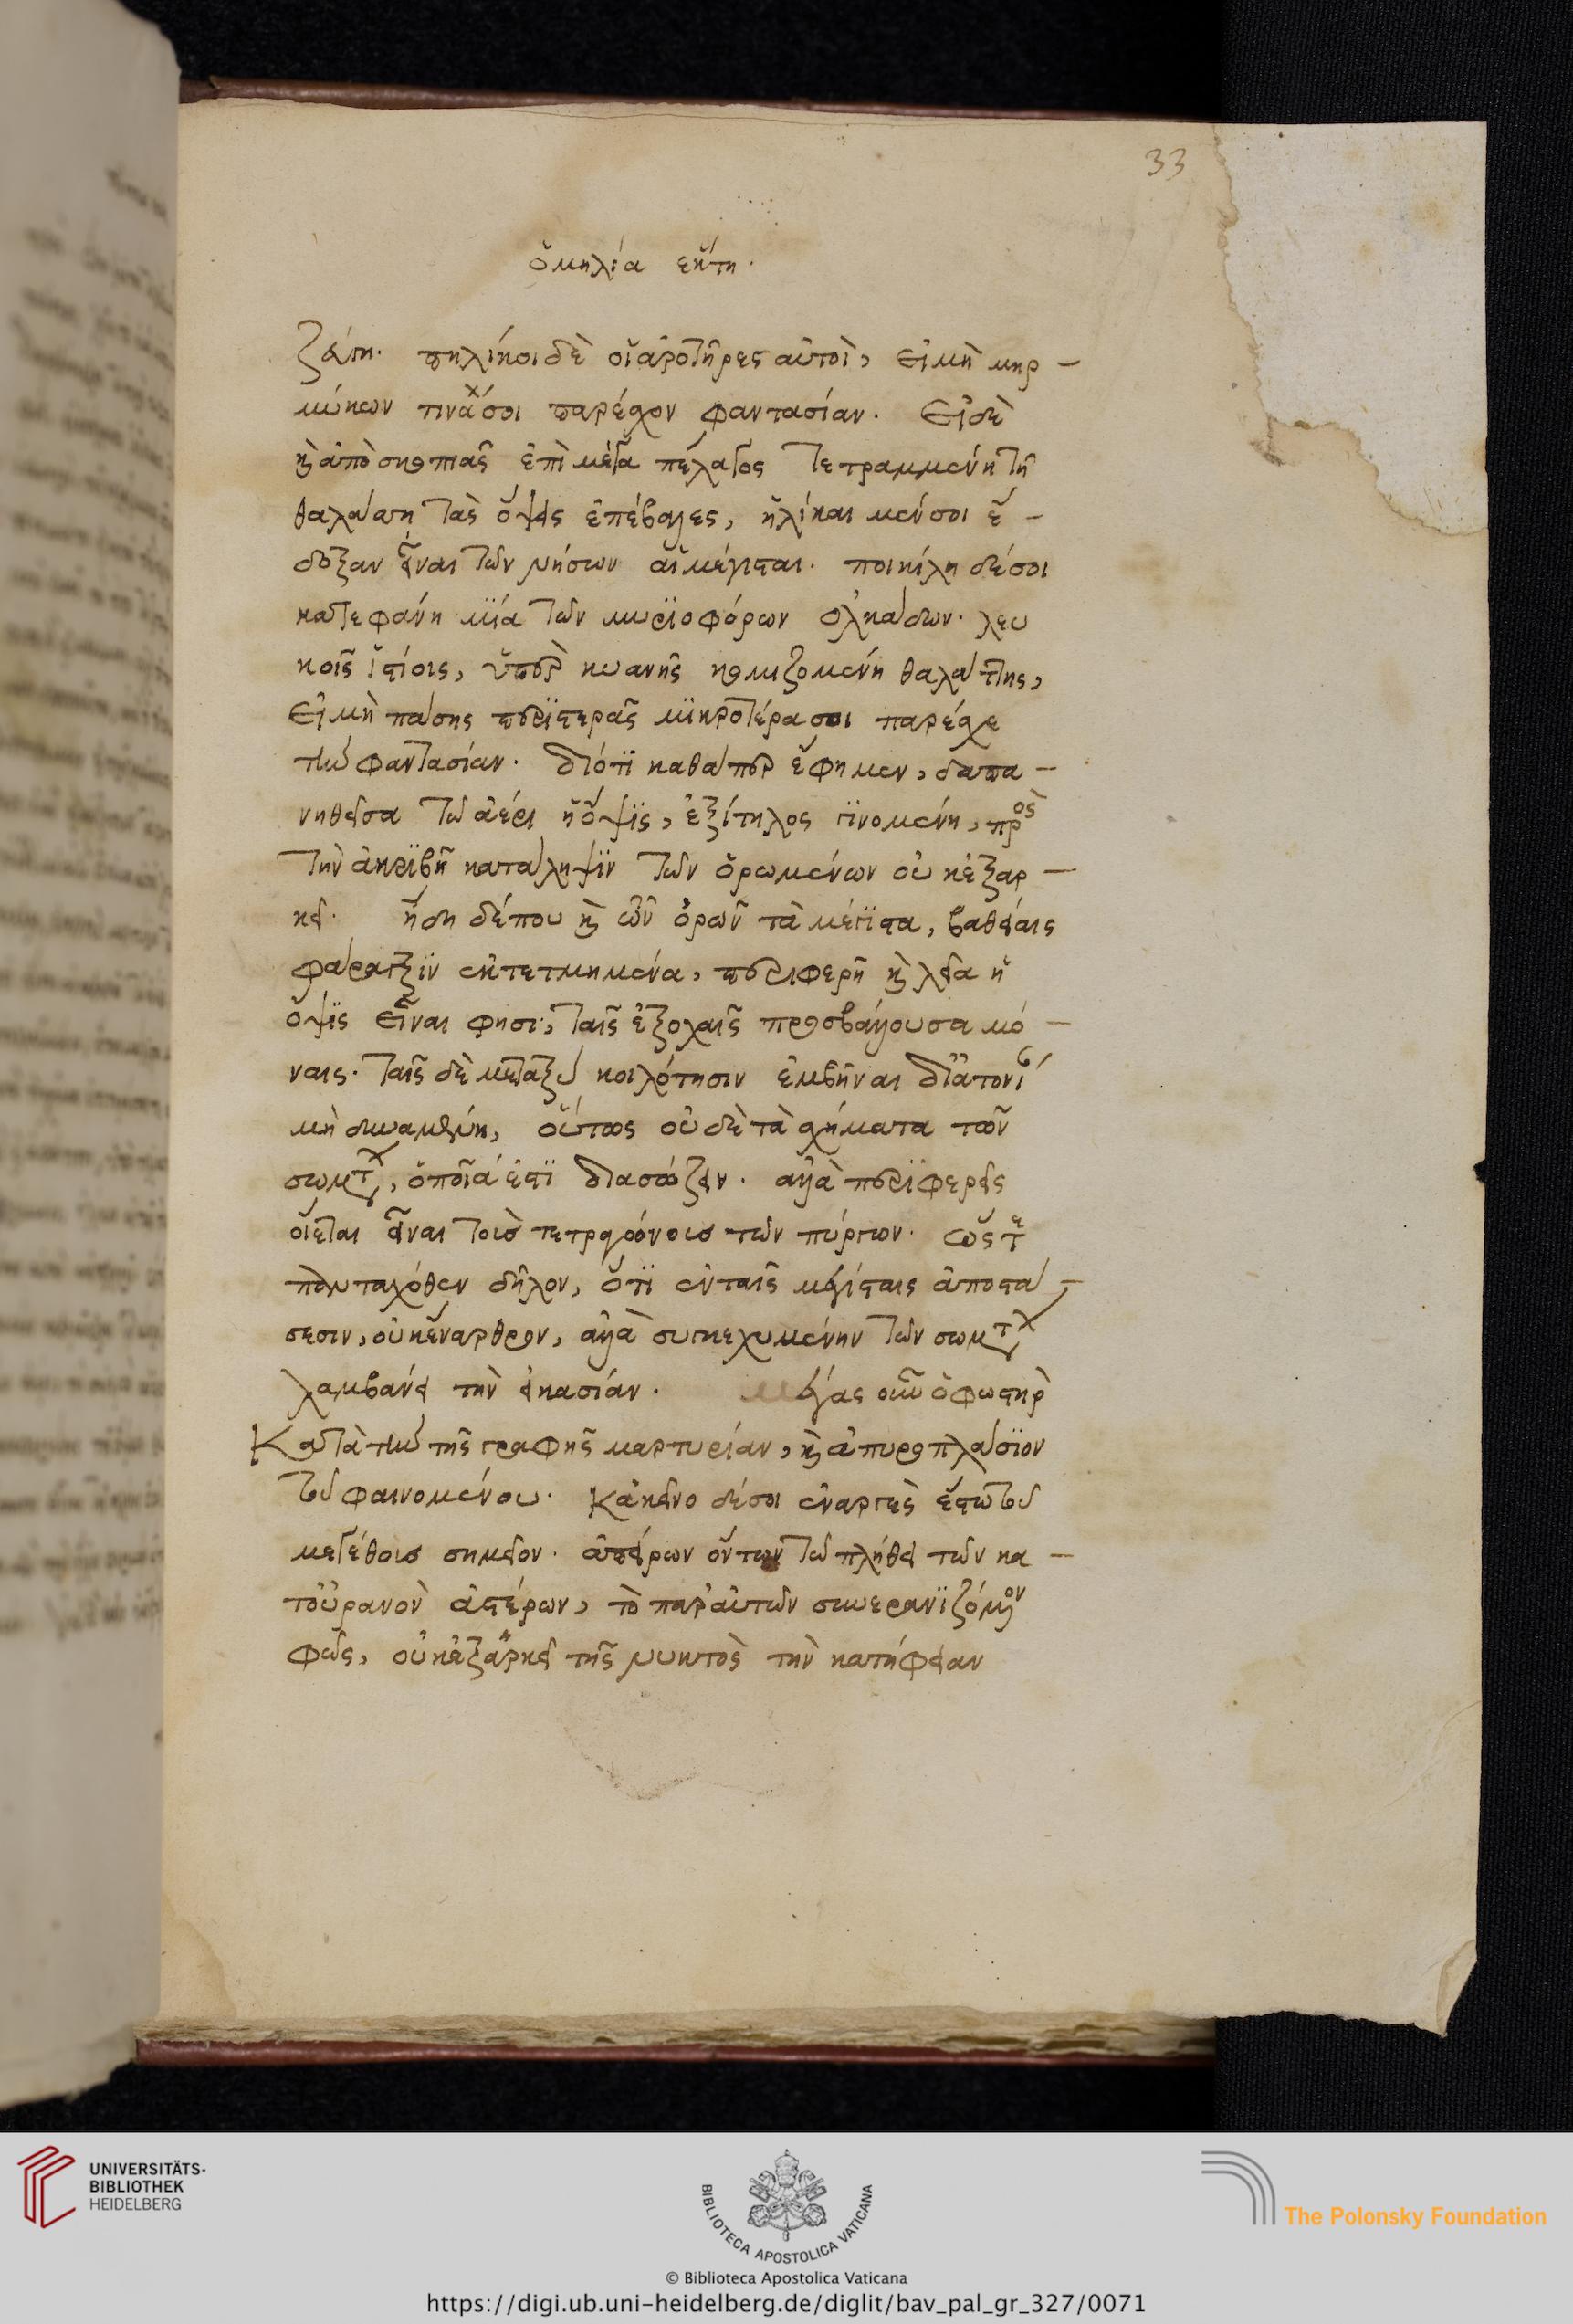 33
ὁμηλία εκτη.
ζεύγη. πηλίκοι δὲ οἱ ἀροτῆρες αὐτοὶ, εἰ μὴ μηρ-
μύκων τινα σοι παρέχον φαντασίαν. Εἰ δὲ
καὶ ἀπὸ σκοπιᾶς ἐπὶ μέγα πέλαγος τετραμμένη τῆ
θαλάσση τὰς ὄψεις ἐπέβαλες, ἡλίκαι μέν σοι ἔ-
δοξαν εἶναι τῶν νήσων αἱ μέγισται. ποικίλη δέ σοι
κατεφάνη μϊὰ τῶν μυρϊοφόρων ὁλκάδων. λευ
κοῖς ἱστίοις, ὑπὲρ κυανῆς κομιζομένη θαλάττης,
εἰ μὴ πάσης περϊστερᾶς μϊκροτέραν σοι παρέχε
τὴν φαντασίαν. διότϊ καθάπερ ἔφημεν, δαπα-
νηθεῖσα τῶ ἀέρι ἡ ὄψϊς, ἐξίτηλος γϊνομένη, πρὸς
τὴν ἀκρϊβῆ κατάληψϊν τῶν ὁρωμένων οὐκ ἐξαρ-
κεῖ. ἤδη δέ που καὶ τῶν ὀρῶν τὰ μέγϊστα, βαθείαις
φάραγξϊν ἐκτετμημένα, περιφερῆ καὶ λεῖα ἡ
ὄψϊς εἶναι φησι, ταῖς ἐξοχαῖς προσβάλλουσα μό-
ναις. ταῖς δὲ μεταξὺ κοιλότησιν ἐμβῆναι δϊ ἀτονί
μὴ δυναμένη, οὕτως οὐδὲ τὰ σχήματα τῶν
σωμτ, ὁποῖά ἐστϊ διασώζειν. ἀλλὰ περϊφερεῖς
οἴεται εἶναι τοὺς τετραγώνους τῶν πύργων. ὥστε
πολυταχόθεν δῆλον, ὅτϊ ἐν ταῖς μεγίσταις ἀποστά-
σεσιν, οὐκ ἔναρθρον, ἀλλὰ συγκεχυμένην τῶν σωμτ
λαμβάνει τὴν εἰκασίαν. μέγας οὖν ὁ φωστὴρ
Κατὰ τὴν τῆς γραφῆς μαρτυρίαν, καὶ ἀπυροπλάσϊον
τοῦ φαινομένου. Κἀκεῖνο δέ σοι ἐναργὲς ἔστω τοῦ
μεγέθους σημεῖον. ἀπείρων ὄντων τῶ πλήθει τῶν κα-
τοὐρανὸν ἀστέρων, τὸ παρ αὐτῶν συνερανϊζόμενον
φῶς, οὐκ ἐξαρκεῖ τῆς νυκτὸς τὴν κατήφειαν
UNIVERSITÄTS-
BIBLIOTHEK
HEIDELBERG
BIBLIOTECA APOSTOLICA VATICANA
The Polonsky Foundation
© Biblioteca Apostolica Vaticana
https://digi.ub.uni-heidelberg.de/diglit/bav_pal_gr_327/0071